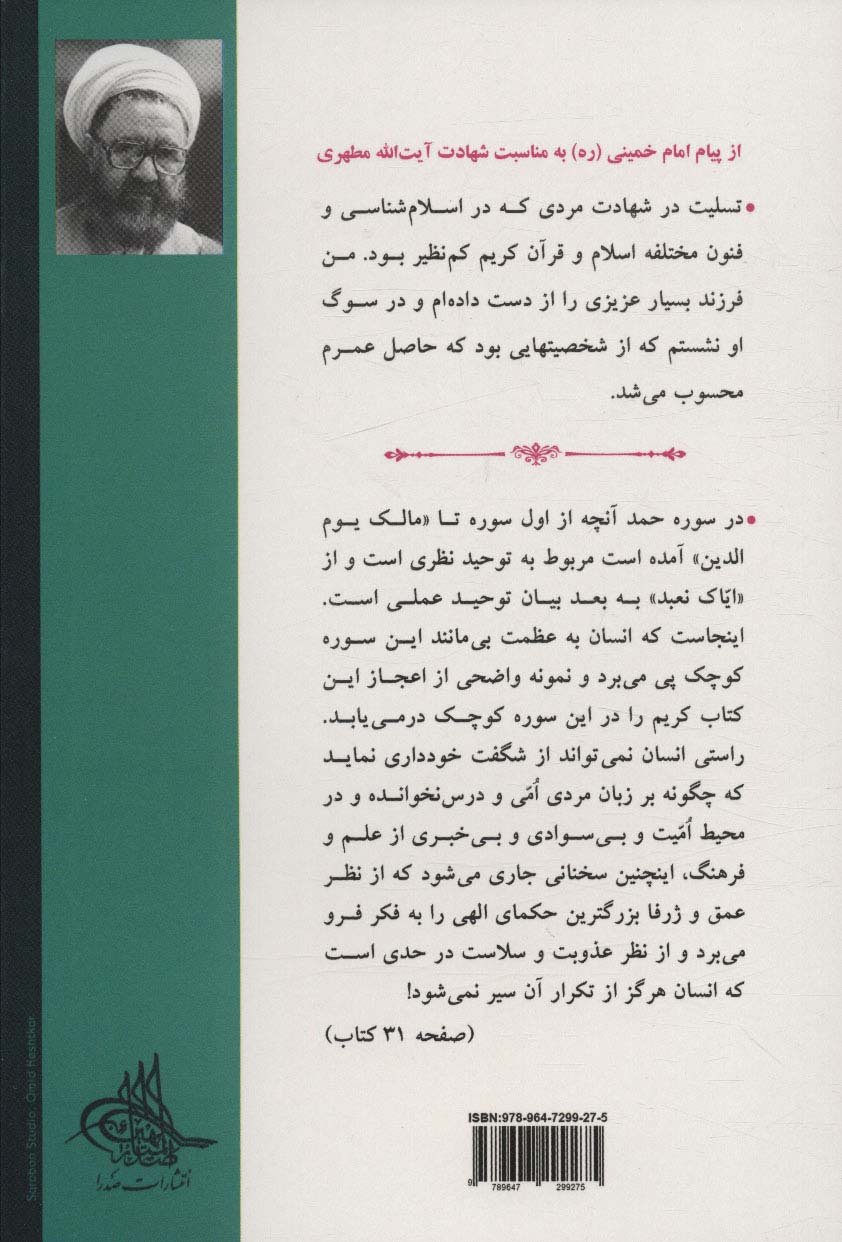 از پیام امام خمینی (ره) به مناسبت شهادت آیت‌الله مطهری
• تسلیت در شهادت مردی که در اسلام‌شناسی و
فنون مختلفه اسلام و قرآن کریم کم‌نظیر بود. من
فرزند بسیار عزیزی را از دست داده‌ام و در سوگ
او نشستم که از شخصیتهایی بود که حاصل عمرم
محسوب می‌شد.
• در سوره حمد آنچه از اول سوره تا «مالک یوم
الدین» آمده است مربوط به توحید نظری است و از
«ایّاک نعبد» به بعد بیان توحید عملی است.
اینجاست که انسان به عظمت بی‌مانند این سوره
کوچک پی می‌برد و نمونه واضحی از اعجاز این
کتاب کریم را در این سوره کوچک درمی‌یابد.
راستی انسان نمی‌تواند از شگفت خودداری نماید
که چگونه بر زبان مردی اُمّی و درس‌نخوانده و در
محیط اُمّیت و بی‌سوادی و بی‌خبری از علم و
فرهنگ، اینچنین سخنانی جاری می‌شود که از نظر
عمق و ژرفا بزرگترین حکمای الهی را به فکر فرو
می‌برد و از نظر عذوبت و سلاست در حدی است
که انسان هرگز از تکرار آن سیر نمی‌شود!
(صفحه ۳۱ کتاب)
ISBN:978-964-7299-27-5
9 789647 299275
انتشارات صدرا
Sarebon Studio, Omid Keshtkar